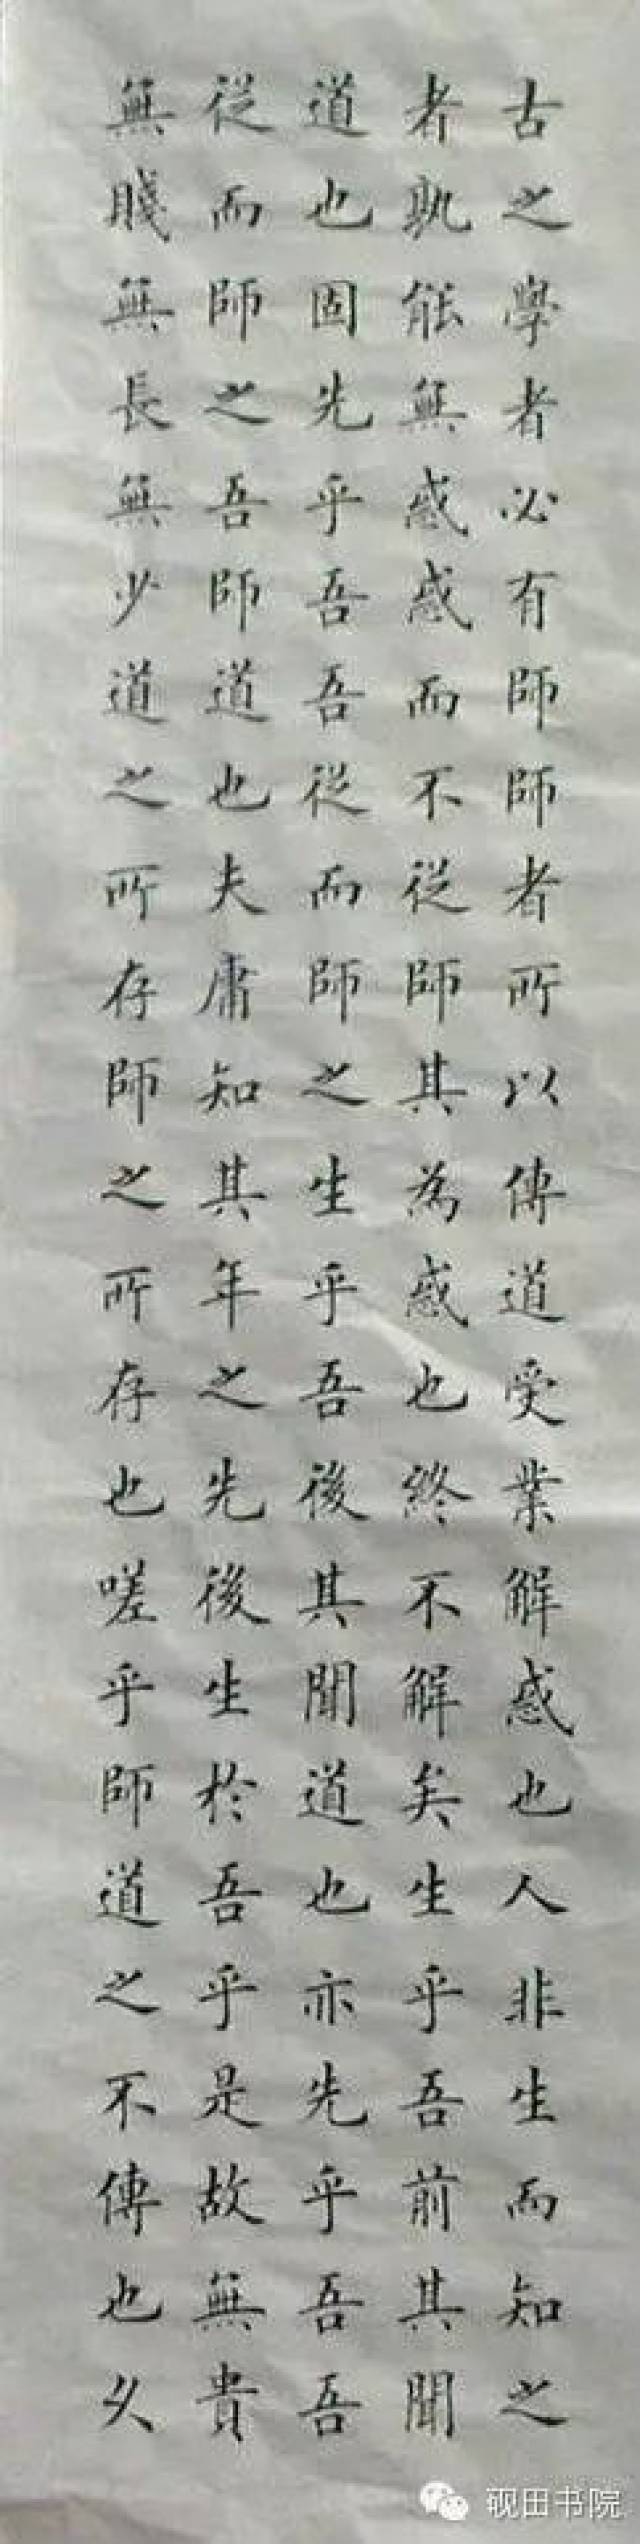 古之學者必有師師者所以傳道受業解惑也人非生而知之
者孰能無惑惑而不從師其為惑也終不解矣生乎吾前其聞
道也固先乎吾吾從而師之生乎吾後其聞道也亦先乎吾吾
從而師之吾師道也夫庸知其年之先後生於吾乎是故無貴
無賤無長無少道之所存師之所存也嗟乎師道之不傳也久
砚田书院